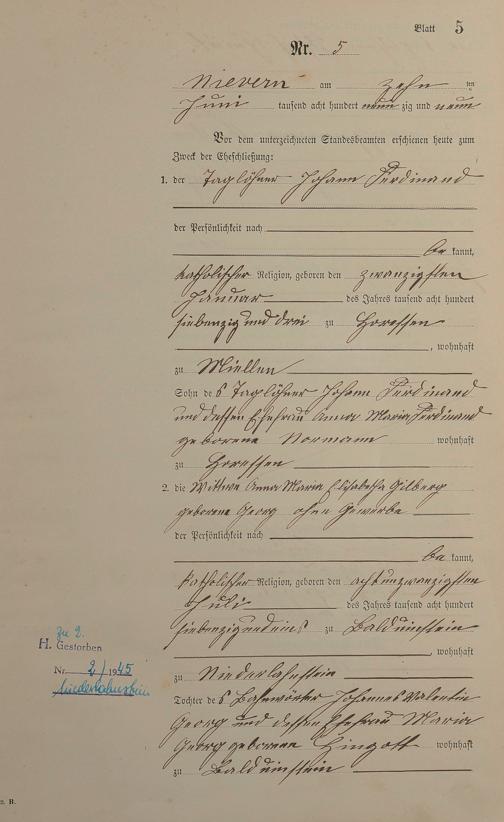 Blatt 5
Nr. 5
Nievern am zehn ten
Juni tausend acht hundert neun zig und neun
Vor dem unterzeichneten Standesbeamten erschienen heute zum
Zweck der Eheschließung:
1. der Taglöhner Johann Ferdinand
der Persönlichkeit nach
be kannt,
katholischer Religion, geboren den zwanzigsten
Januar des Jahres tausend acht hundert
siebenzig und drei zu Horessen
, wohnhaft
zu Miellen
Sohn des Taglöhner Johann Ferdinand
und dessen Ehefrau Anna Maria Ferdinand
geborene Normann wohnhaft
zu Horessen
2. die Wittwe Anna Maria Elisabetha Gilberg
geborene Georg ohne Gewerbe
der Persönlichkeit nach
be kannt,
katholischer Religion, geboren den achtundzwanzigsten
Juli des Jahres tausend acht hundert
siebenzigundeins zu Balduinstein
, wohnhaft
zu Niederlahnstein
Tochter des Bahnwärter Johannes Valentin
Georg und dessen Ehefrau Maria
Georg geborenen wohnhaft
zu Balduinstein
zu 2.
H. Gestorben
Nr. 2/1945
Niederlahnstein
B.